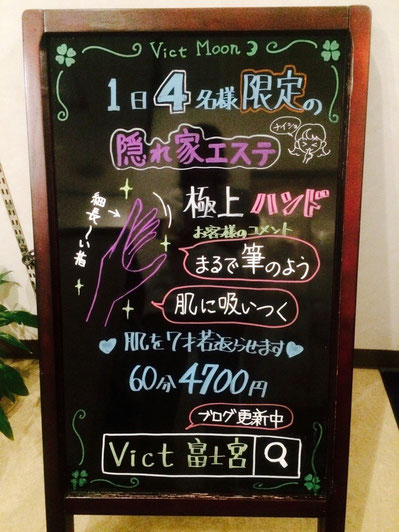 Vict Moon
1日4名様限定の
隠れ家エステ
ナイショ
極上ハンド
細長〜い指
お客様のコメント
まるで筆のよう
肌に吸いつく
肌を7才若返らせます
60分4700円
ブログ更新中
Vict 富士宮